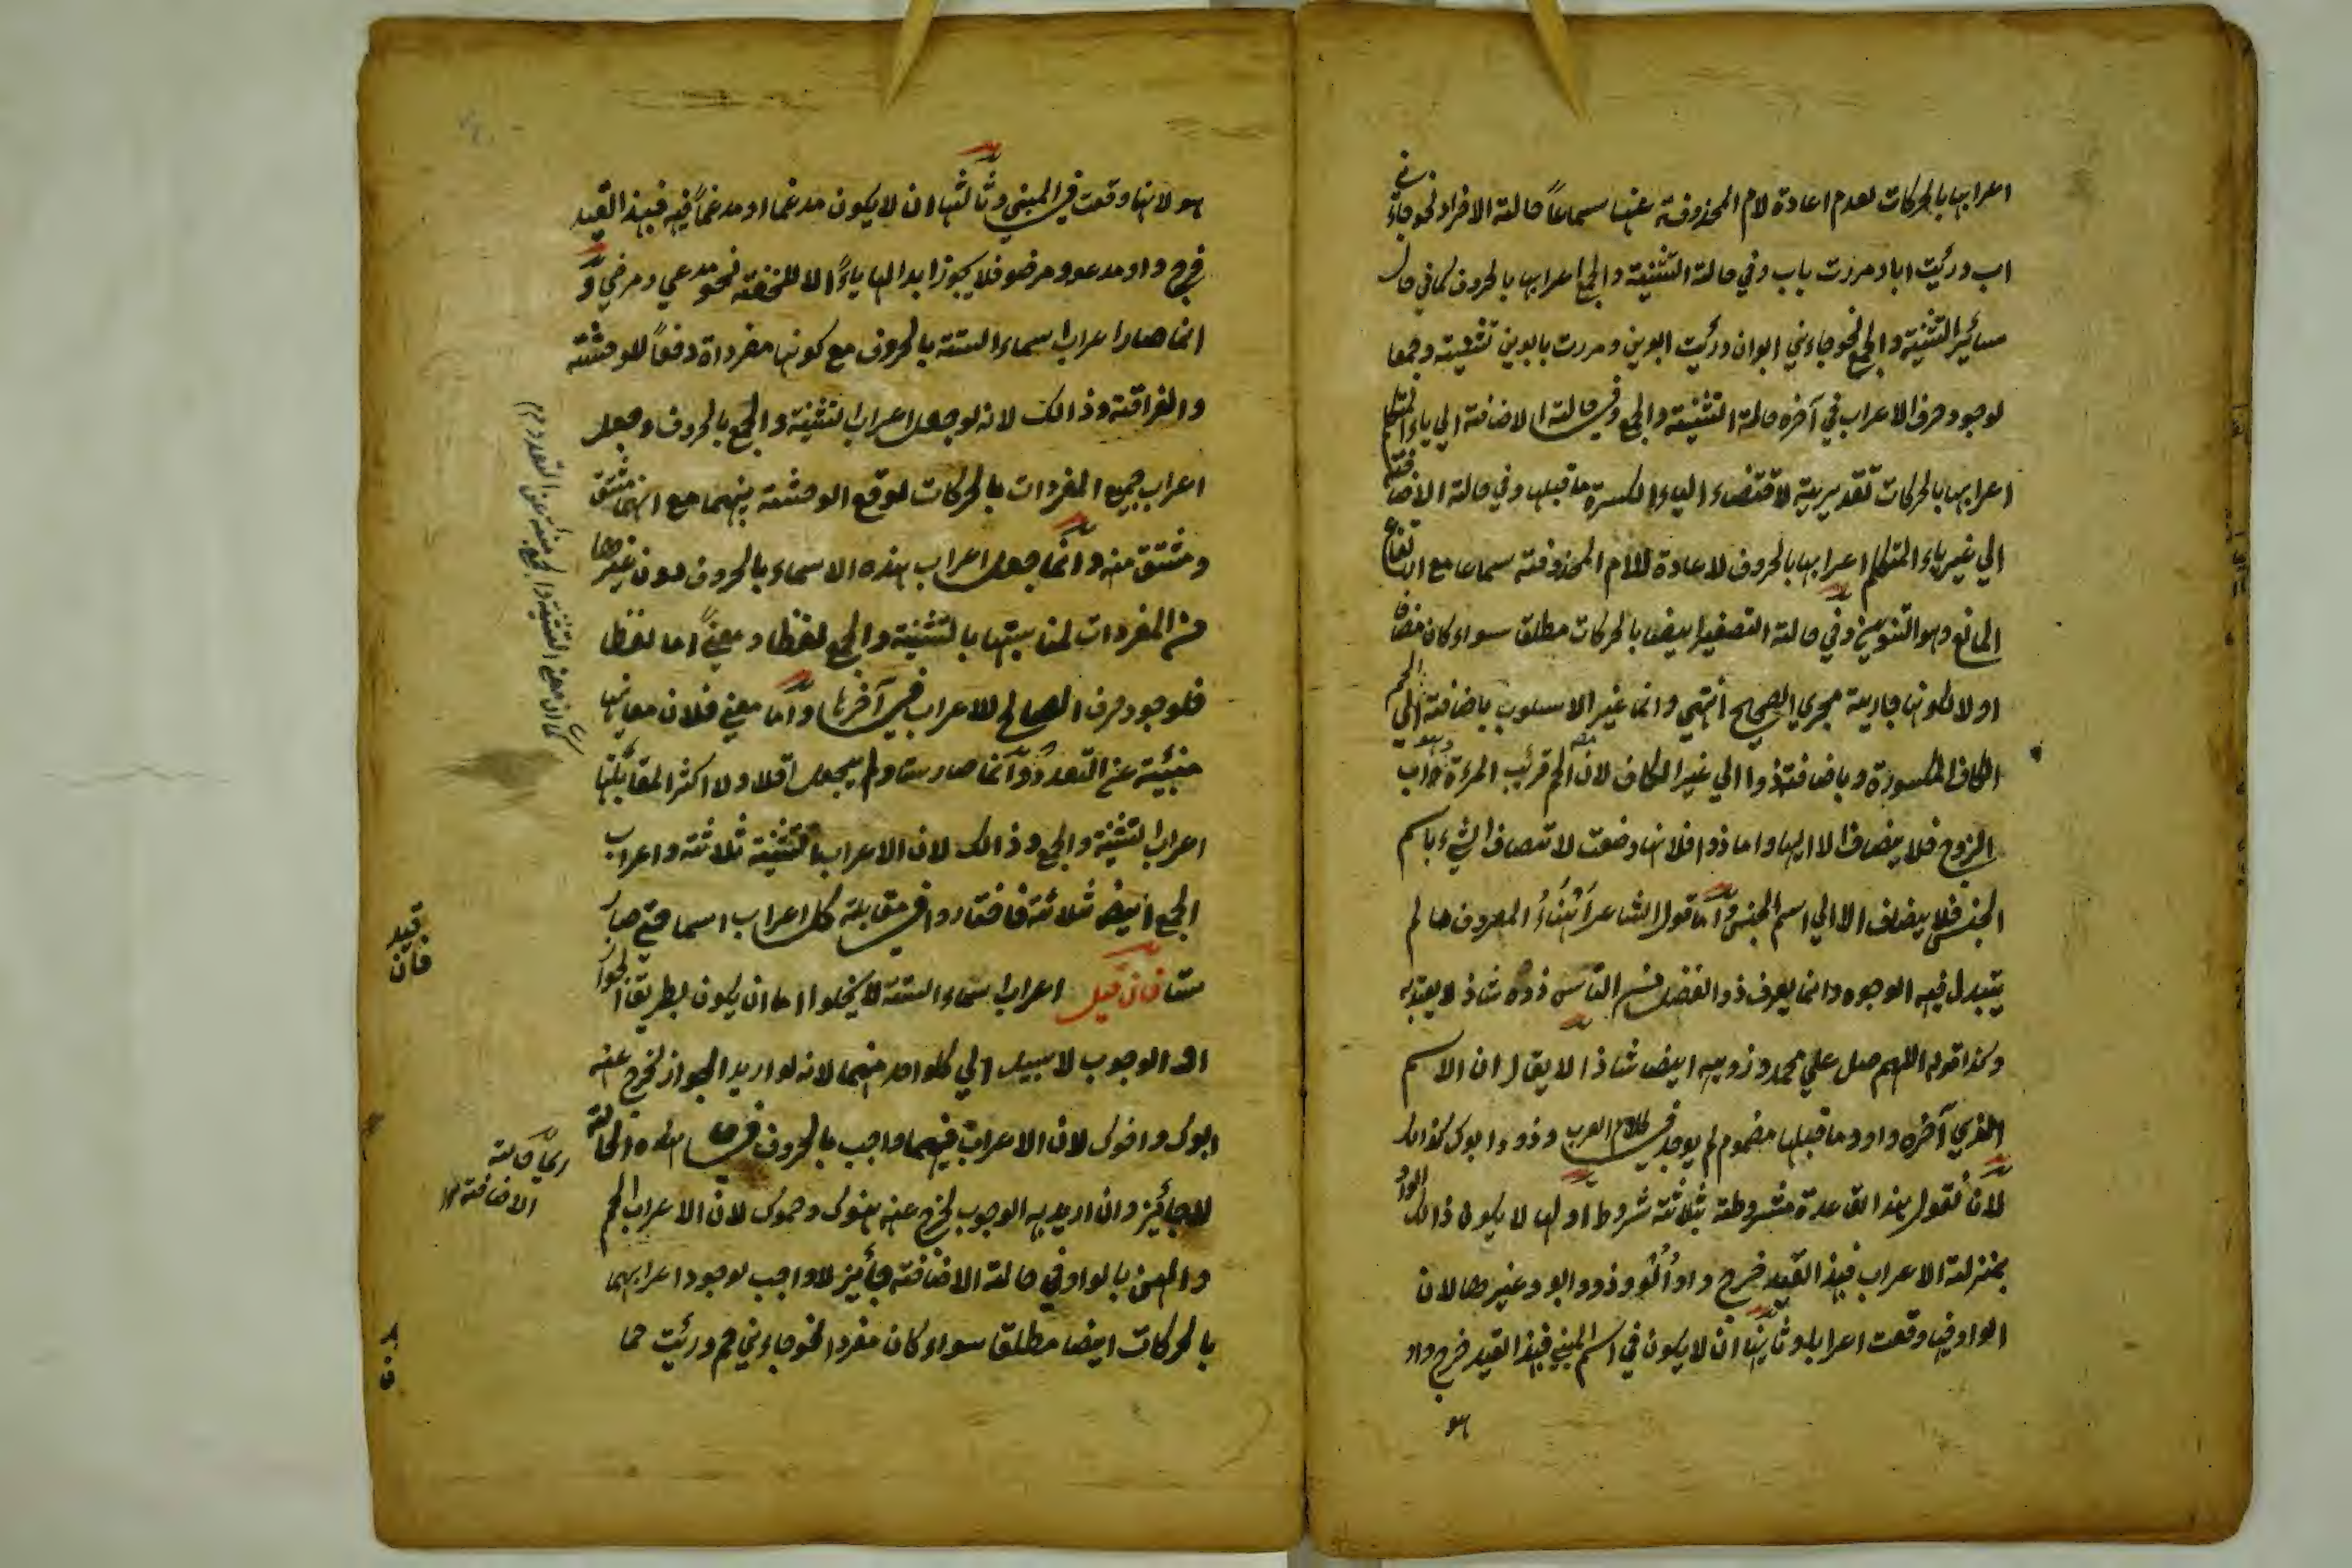 اعرابها بالحركات لعدم اعادة لام المحذوفة عنها سماعاً حالة الافراد نحو جاءني
اب ورئيت ابا ومررت باب وفي حالة التثنية والجمع اعرابها بالحروف كما في حال
سائر التثنية والجمع نحو جاءني ابوان ورئيت ابوين ومررت بابوين تثنية وجمعا
لوجود حرف الاعراب في آخره حالة التثنية والجمع وفي حالة الاضافة الي ياء المتكلم
اعرابها بالحركات تقديرية لاقتضاء الياء الكسرة ما قبلها وفي حالة الاضافة
الي غير ياء المتكلم اعرابها بالحروف لاعادة اللام المحذوفة سماعا مع ارتفاع
المانع وهو التنوين وفي حالة التصغير ايضا بالحركات مطلقا سواء كان مضافا
او لا لكونها جارية مجري الصحيح انتهي وانما غير الاسلوب باضافة الحم الي
الكاف المكسورة وباضافة ذوا الي غير الكاف لان الحم قريب المرءة وهو اب
الزوج فلا يضاف الا اليها واما ذوا فلانها وضعت لاتصاف الشيء باسم
الجنس فلا يضاف الا الي اسم الجنس واما قول الشاعر اثناء المعروف ما لم
يتبدل فيه الوجوه وانما يعرف ذو الفضل من الناس ذوه شاذ لا يعتد به
وكذا قوله اللهم صل علي محمد وذويه ايضا شاذا لا يقال ان الاسم
الذي آخره واو وما قبلها مضموم لم يوجد في كلام العرب وذو وابوك كذالك
لان نقول هذا القاعدة مشروطة بثلاثة شروط اولها لا يكون ذالك الواو
بمنزلة الاعراب فبهذا القيد خرج واو وذو وابو وغيرها لان
الواو فيها وقعت اعرابا وثانيها ان لا يكون في اسم المبني فبهذا القيد خرج واو
هو
هو لانها وقعت في المبني وثالثها ان لا يكون مدغما او مدغماً فيه فبهذا القيد
خرج واو مدعو ومرضو فلا يجوز ابدالها ياءً الا للخفة نحو مدعي ومرضي و
انما صار اعراب اسماء الستة بالحروف مع كونها مفرداة دفعاً للوحشة
والفراقة وذالك لانه لو جعل اعراب التثنية والجمع بالحروف وجعل
اعراب جميع المفردات بالحركات لوقع الوحشة بينهما مع انهما مشتق
ومشتق منه وانما جعل اعراب هذه الاسماء بالحروف دون غيرها
من المفردات لمناسبتها بالتثنية والجمع لفظا ومعنيً اما لفظا
فلوجود حرف الصالح للاعراب في آخرها واما معني فلان معانيها
منبئية عن التعدد وانما صار ستا ولم يجعل اقلا ولا اكثر المقابلتها
اعراب التثنية والجمع وذالك لان الاعراب التثنية ثلاثة واعراب
الجمع ايضا ثلاثة فاختاروا في مقابلة كل اعراب اسما حتي صار
ستا فان قيل اعراب اسماء الستة لا يخلوا اما ان يكون بطريق الجواز
او الوجوب لا سبيل الي كل واحد منهما لانه لو اريد الجواز لخرج عنه
ابوك واخوك لان الاعراب فيهما واجب بالحروف في هذه الحالة
لا جائز وان اريد به الوجوب لخرج عنه هنوك وحموك لان الاعراب الحم
والهن بالواو في حالة الاضافة جائز لا واجب لوجود اعرابهما
بالحركات ايضا مطلقا سواء كان مفردا نحو جاءني حم ورئيت حما
قيد
فان
اي حالة
الاضافة